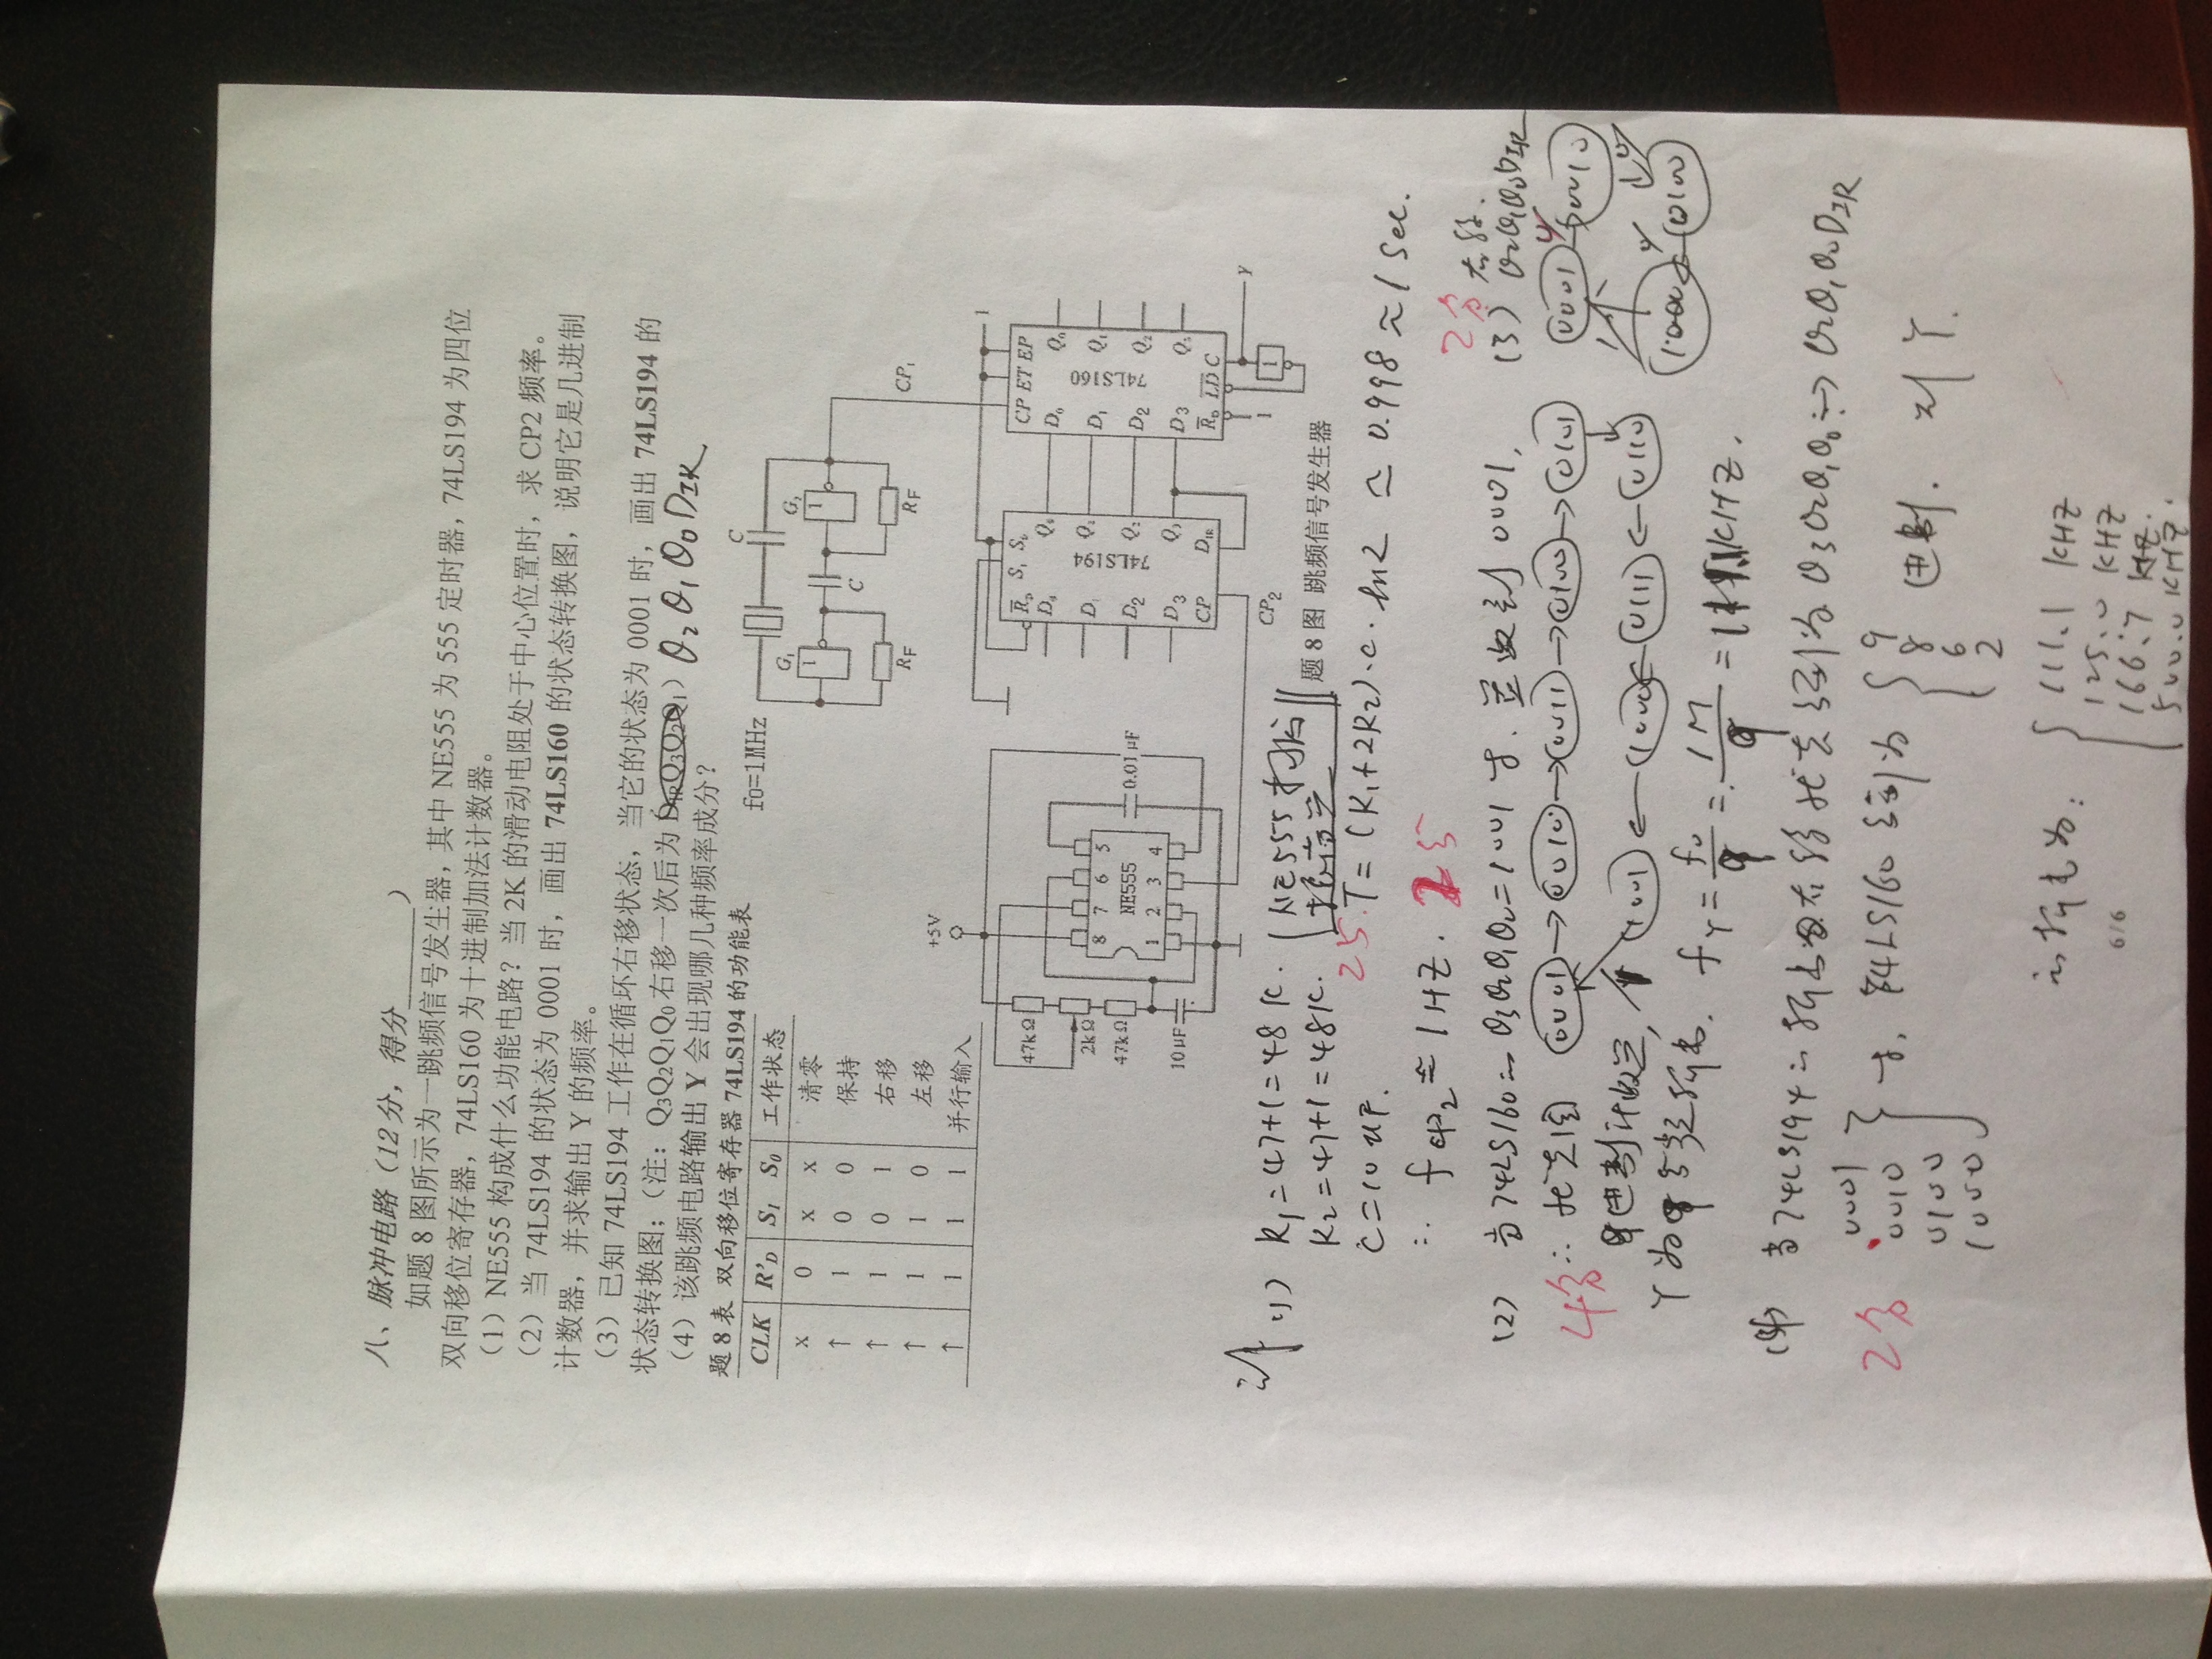 八、脉冲电路（12分，得分______）
如题8图所示为一跳频信号发生器，其中NE555为555定时器，74LS194为四位
双向移位寄存器，74LS160为十进制加法计数器。
（1）NE555构成什么功能电路？当2K的滑动电阻处于中心位置时，求CP2频率。
（2）当74LS194的状态为0001时，画出74LS160的状态转换图，说明它是几进制
计数器，并求输出Y的频率。
（3）已知74LS194工作在循环右移状态，当它的状态为0001时，画出74LS194的
状态转换图；（注：Q3Q2Q1Q0右移一次后为D1RQ3Q2Q1）Q2Q1Q0DIR
（4）该跳频电路输出Y会出现哪几种频率成分？
题8表 双向移位寄存器74LS194的功能表
CLK R'D S1 S0 工作状态
x 0 x x 清零
↑ 1 0 0 保持
↑ 1 0 1 右移
↑ 1 1 0 左移
↑ 1 1 1 并行输入
fo=1MHz
C
G1 G2
1 1
C
RF RF
CP1
+5V
47kΩ
2kΩ
47kΩ
10μF
8 7 6 5
NE555
1 2 3 4
0.01μF
1
RD S1 S0
D1
D2
D3
Q2
Q3
CP DIR
74LS194
CP2
CP ET EP
D0 Q0
D1 Q1
D2 Q2
D3 Q3
RD LD C
74LS160
1
1
Y
题8图 跳频信号发生器
(1) R1=47+1=48K.
R2=47+1=48K.
NE555
C=10uF.
T=(R1+2R2)·C·ln2 ≃ 0.998≈1 Sec.
∴ fCP2≃1HZ.
(2) 当74LS160 Q3Q2Q1Q0=1001 0001,
4分 ∴ 状态图 0001→0010→0011→0100→0101
9进制计数器, 1001←1000←0111←0110
fY=f0/9=1M/9=111.1KHZ.
2分 右移.
(3) Q2Q1Q0DIR
0001→0010
1000←0100
(4) 当74LS194 右移状态 为Q3Q2Q1Q0→Q2Q1Q0DIR
2分
0001
0010
0100
1000
74LS160 为
9
8
6
2
进制. 则Y
为:
111.1 KHZ
125.0 KHZ
166.7 KHZ.
500.0 KHZ.
6/6